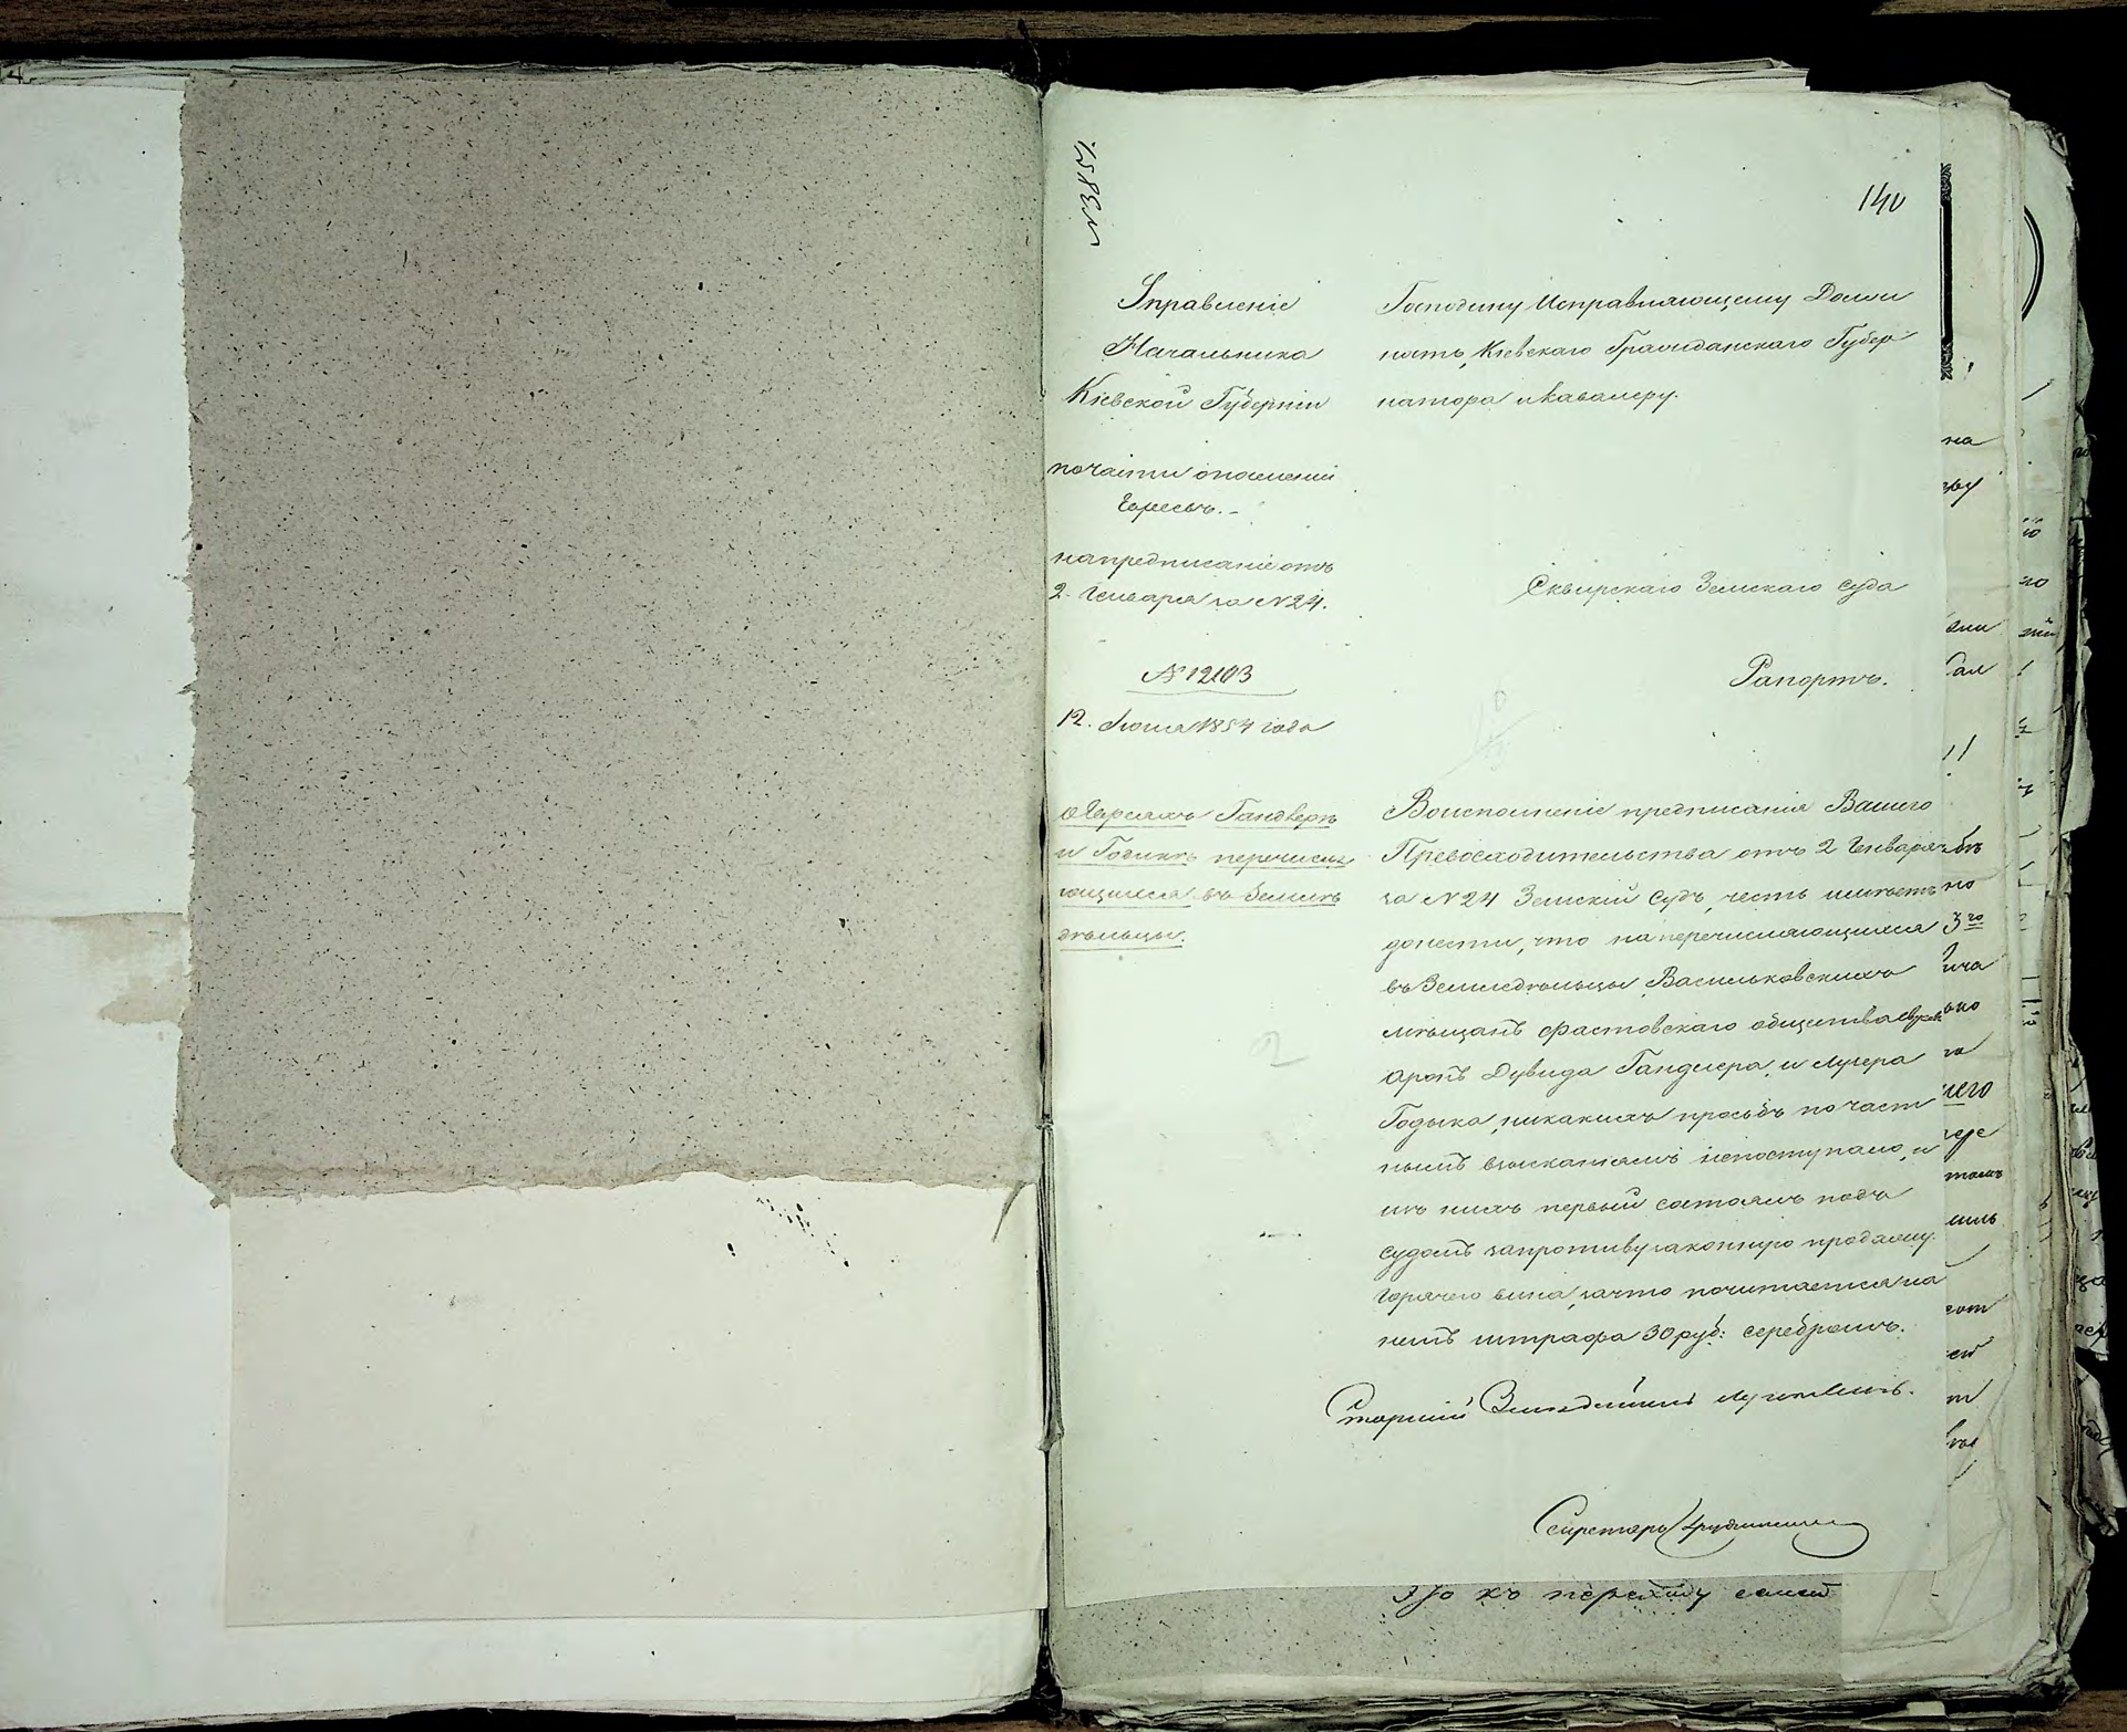 140
Управленіе
Начальника
Кіевской Губерніи
по части о поселеніи
Евреевъ.-
на предписаніе отъ
2. Генваря за №24.
№ 12103
12. Іюня 1854 года
О Евреяхъ Гандлеръ
и Годикъ перечисля
ющихся въ Земле
дѣльцы.
Господину Исправляющему Долж
ность, Кіевскаго Гражданскаго Губер
натора и Кавалеру.
Сквирскаго Земскаго Суда
Рапортъ.
Во исполненіе предписанія Вашего
Превосходительства отъ 2 Генваря
за №24 Земскій Судъ, честь имѣетъ
донести, что на перечисляющихся
въ Земледѣльцы, Васильковскихъ
мѣщанъ Фастовскаго общества
Аронъ Дувида Гандлера, и Лузера
Годыка, никакихъ прозьбъ по част
нымъ взысканіямъ непоступало, и
изъ нихъ первый состоялъ подъ
судомъ за противузаконную продажу
горячего вина, за что почитается на
немъ штрафа 30 руб: серебромъ.
Старшій
Секретарь
къ переходу